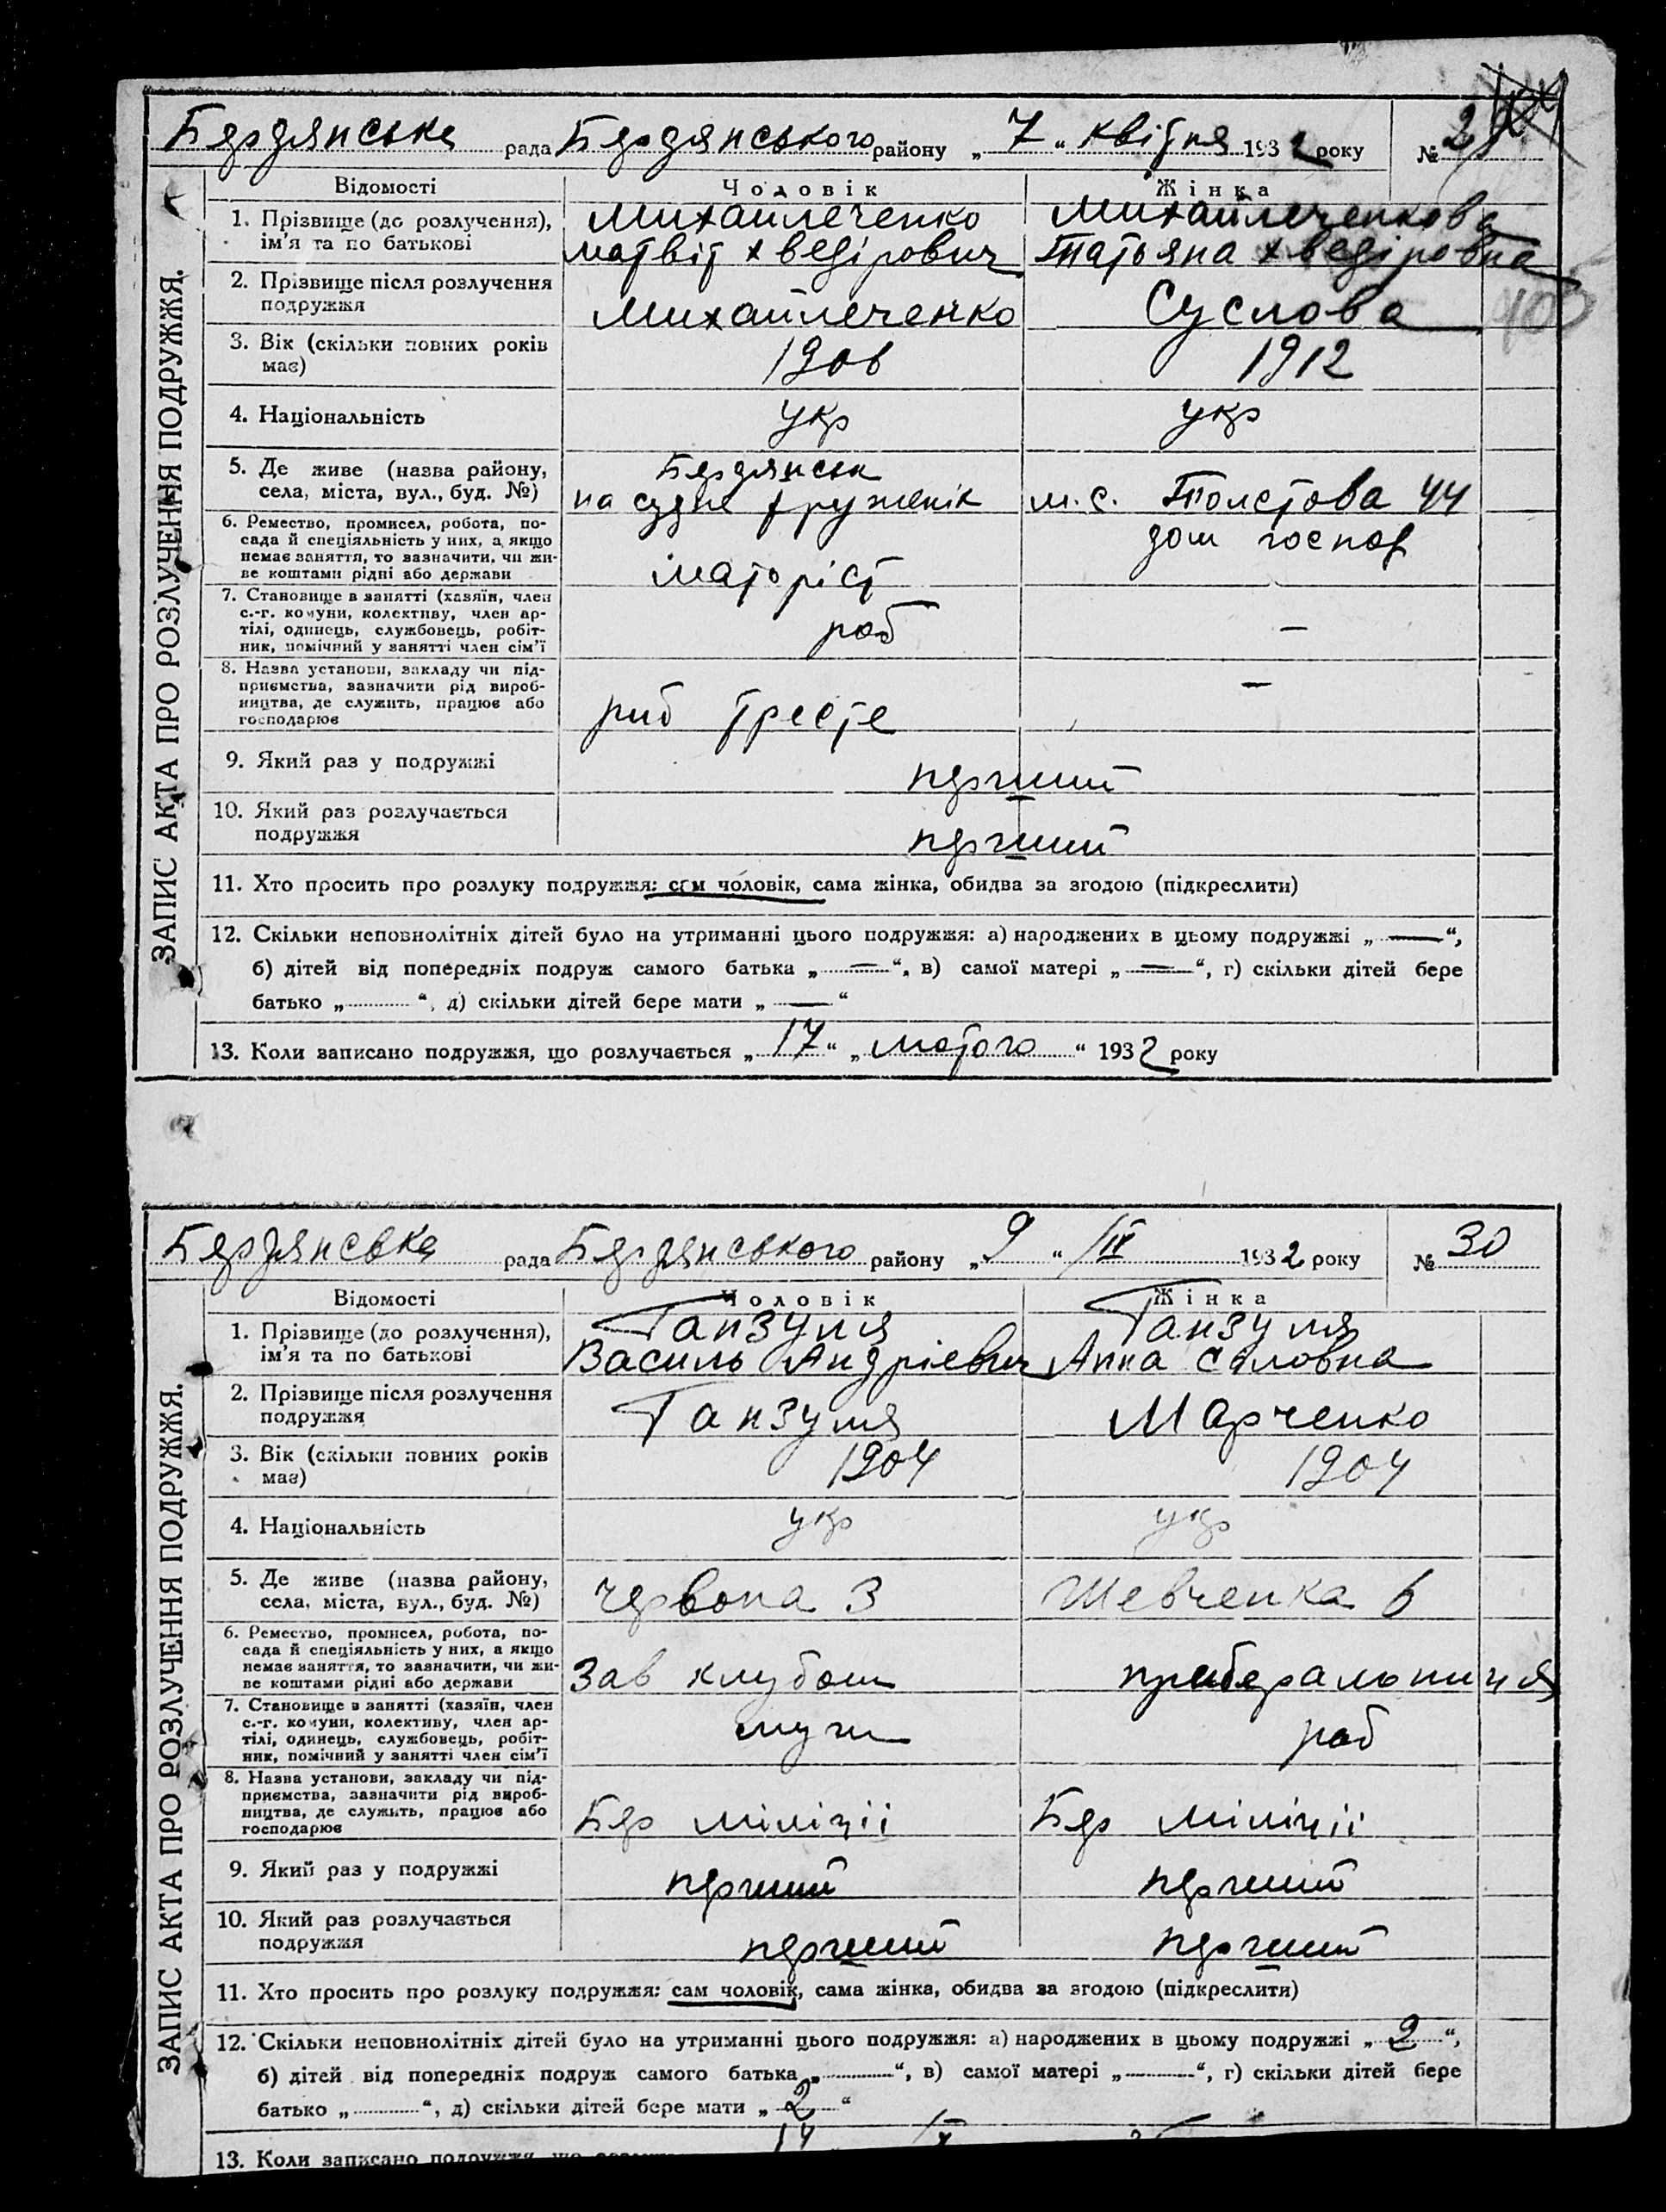 Бердянська рада Бердянського району „ 7 “ квітня 1932 року №
ЗАПИС АКТА ПРО РОЗЛУЧЕННЯ ПОДРУЖЖЯ.
Відомості Чоловік Жінка
1. Прізвище (до розлучення), ім'я та по батькові
Михайлеченко Михайлеченкова
Матвій Хведірович Татьяна Хведіровна
2. Прізвище після розлучення подружжя
Михайлеченко Суслова
3. Вік (скільки повних років має)
1906 1912
4. Національність укр укр
5. Де живе (назва району, села, міста, вул., буд. №)
Бердянськ
на судне м. с. Толстова 44
6. Ремество, промисел, робота, по-
сада й спеціяльність у них, а якщо
немає заняття, то зазначити, чи жи-
ве коштами рідні або держави
маторіст дом господ
7. Становище в занятті (хазяїн, член
с.-г. комуни, колективу, член ар-
тілі, одинець, службовець, робіт-
ник, помічний у занятті член сім'ї
роб —
8. Назва установи, закладу чи під-
приємства, зазначити рід вироб-
ництва, де служить, працює або
господарює
риб тресте —
9. Який раз у подружжі перший
10. Який раз розлучається подружжя перший
11. Хто просить про розлуку подружжя: сам чоловік, сама жінка, обидва за згодою (підкреслити)
12. Скільки неповнолітніх дітей було на утриманні цього подружжя: а) народжених в цьому подружжі „ — “,
б) дітей від попередніх подруж самого батька „ — “, в) самої матері „ — “, г) скільки дітей бере
батько „ “, д) скільки дітей бере мати „ — “
13. Коли записано подружжя, що розлучається „ 17 “ „ лютого “ 1932 року
Бердянська рада Бердянського району „ 9 “ /IV 1932 року № 30
ЗАПИС АКТА ПРО РОЗЛУЧЕННЯ ПОДРУЖЖЯ.
Відомості Чоловік Жінка
1. Прізвище (до розлучення), ім'я та по батькові
Ганзуля Ганзуля
Василь Андріевич Анна
2. Прізвище після розлучення подружжя
Ганзуля Марченко
3. Вік (скільки повних років має)
1904 1904
4. Національність укр укр
5. Де живе (назва району, села, міста, вул., буд. №)
Червона 3 Шевченка 6
6. Ремество, промисел, робота, по-
сада й спеціяльність у них, а якщо
немає заняття, то зазначити, чи жи-
ве коштами рідні або держави
Зав клубом
7. Становище в занятті (хазяїн, член
с.-г. комуни, колективу, член ар-
тілі, одинець, службовець, робіт-
ник, помічний у занятті член сім'ї
роб
8. Назва установи, закладу чи під-
приємства, зазначити рід вироб-
ництва, де служить, працює або
господарює
Бер міліціі Бер міліціі
9. Який раз у подружжі перший перший
10. Який раз розлучається подружжя перший перший
11. Хто просить про розлуку подружжя: сам чоловік, сама жінка, обидва за згодою (підкреслити)
12. Скільки неповнолітніх дітей було на утриманні цього подружжя: а) народжених в цьому подружжі „ 2 “,
б) дітей від попередніх подруж самого батька „ “, в) самої матері „ “, г) скільки дітей бере
батько „ “, д) скільки дітей бере мати „ 2 “
13. Коли записано подружжя, що